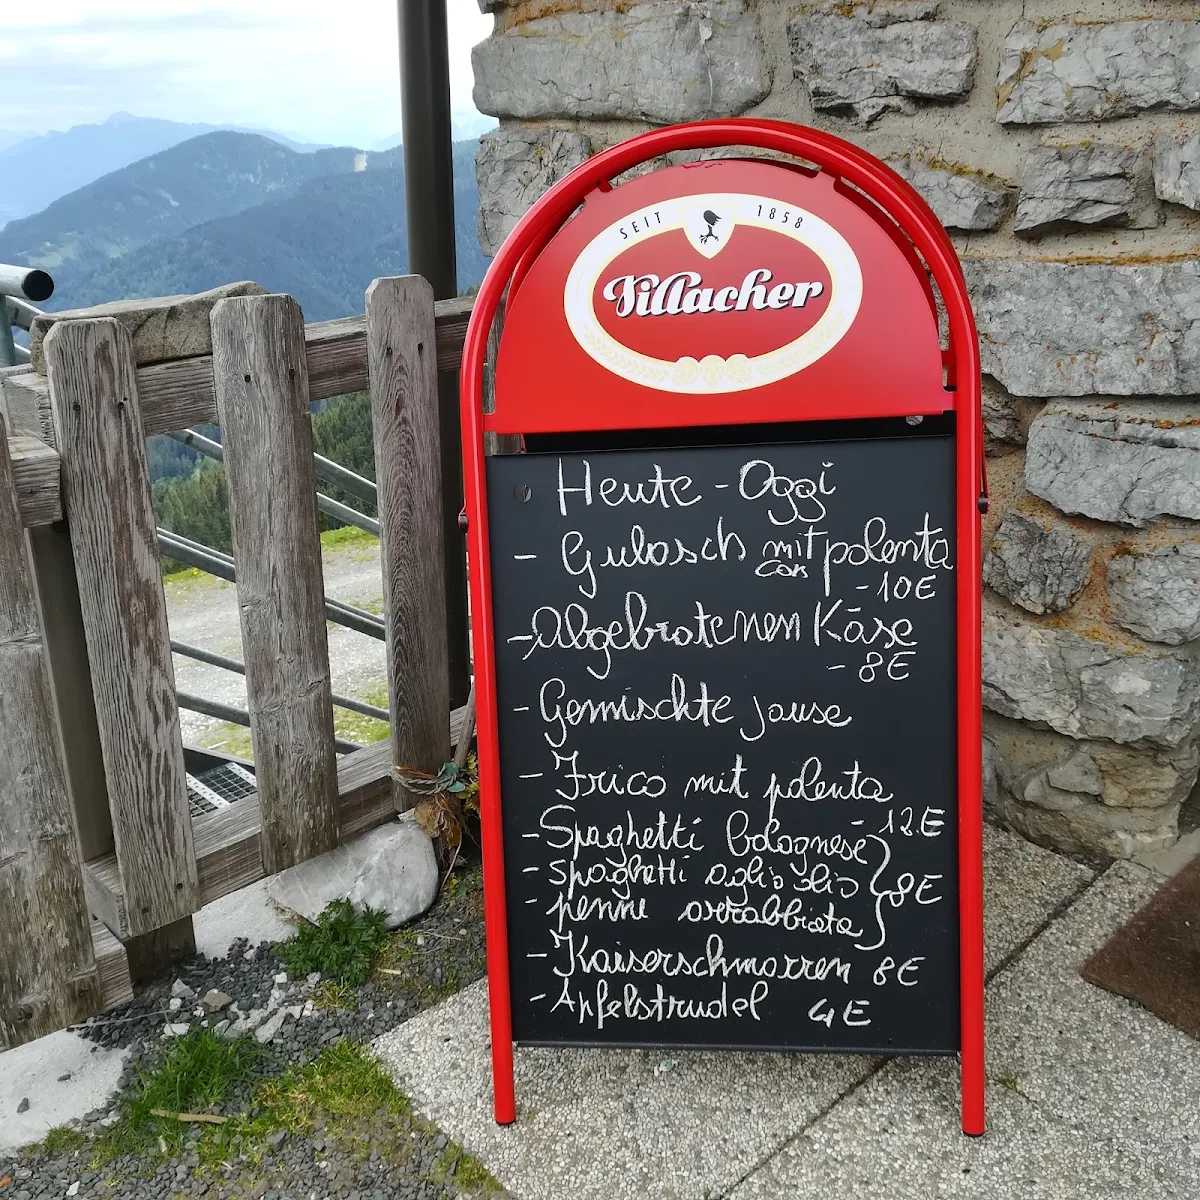 SEIT 1858
Villacher
Heute - Oggi
- Gulasch mit polenta
con
- 10 E
- Abgebratenen Käse
- 8 E
- Gemischte jause
- Frico mit polenta
- 12 E
- Spaghetti bolognese
- spaghetti aglio olio 8 E
- penne arrabbiata
- Kaiserschmarren 8 E
- Apfelstrudel 4 E